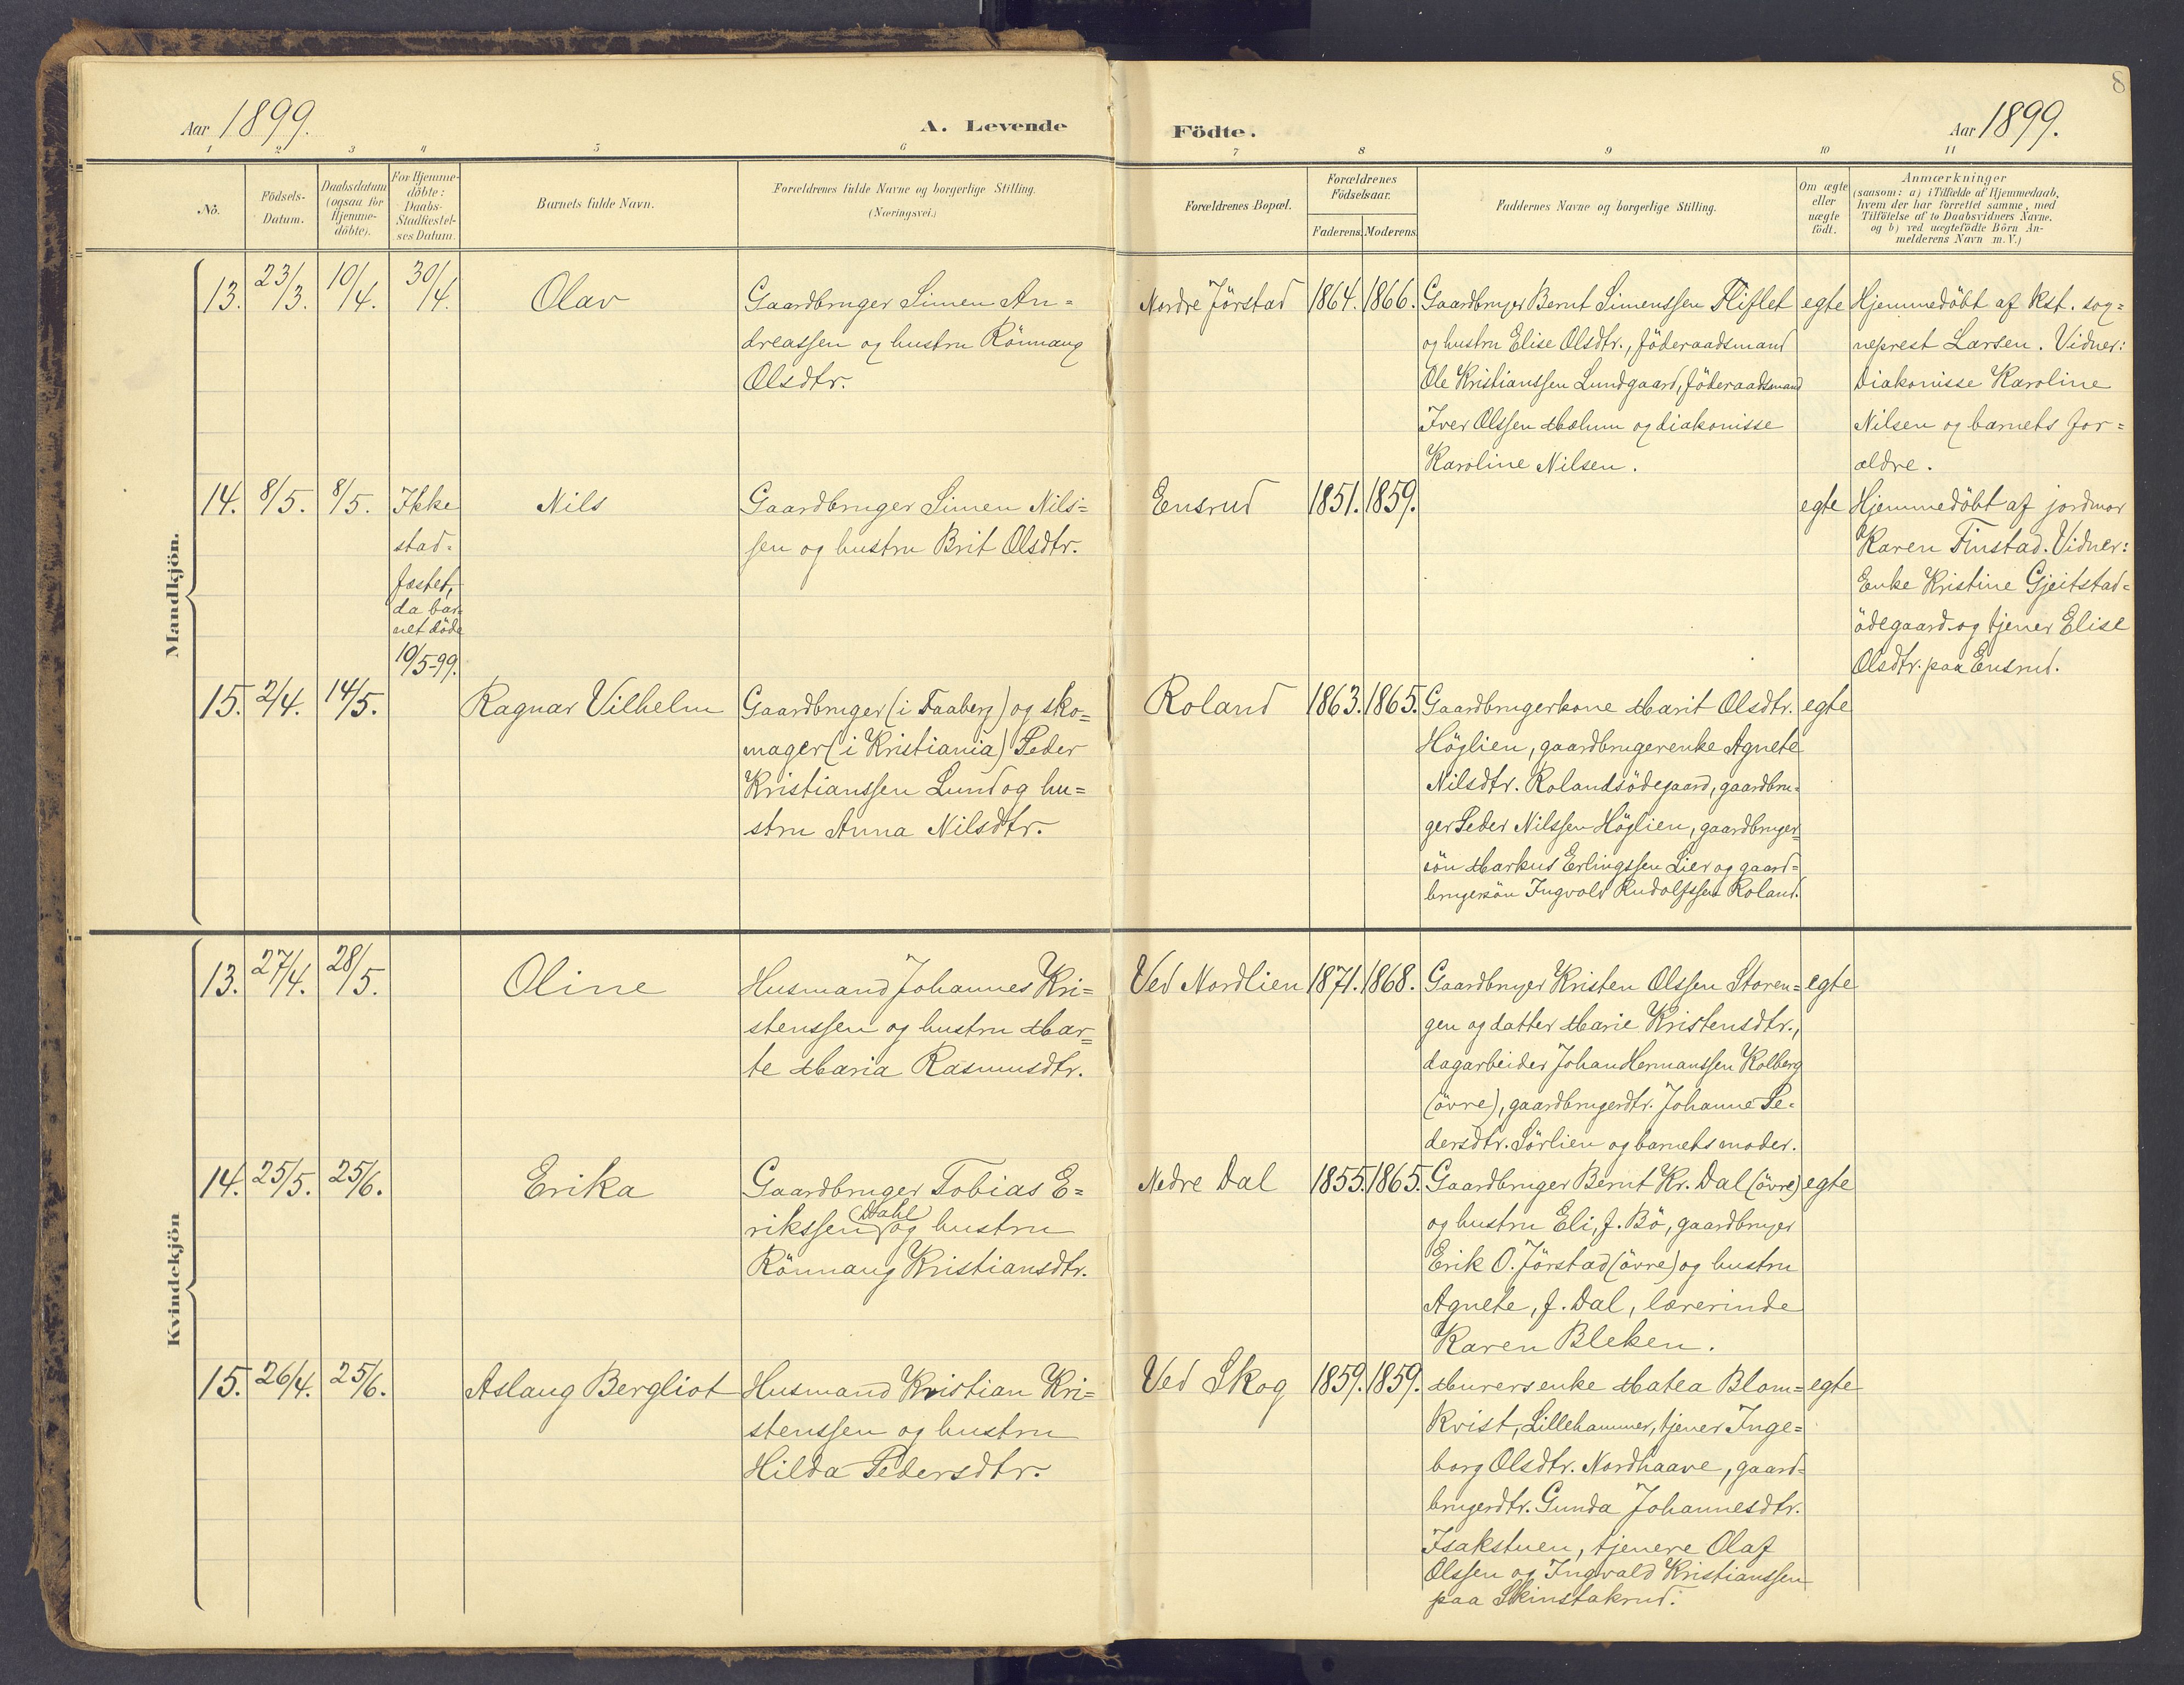 8
Aar 1899.
A. Levende Födte.
Aar 1899.
1 2 3 4 5 6 7 8 9 10 11
No.
Födsels-
Datum.
Daabsdatum
(ogsaa for
Hjemme-
döbte).
For Hjemme-
döbte:
Daabs-
Stadfæstel-
ses Datum.
Barnets fulde Navn.
Forældrenes fulde Navne og borgerlige Stilling.
(Næringsvei.)
Forældrenes Bopæl.
Forældrenes
Födselsaar.
Faderens.
Moderens.
Faddernes Navne og borgerlige Stilling.
Om ægte
eller
uægte
födt.
Anmærkninger
(saasom: a) i Tilfælde af Hjemmedaab,
hvem der har forrettet samme, med
Tilföielse af to Daabsvidners Navne,
og b) ved uægtefödte Börn An-
melderens Navn m. V.)
Mandkjön.
13. 23/3. 10/4. 30/4. Olav
Gaardbruger Simen An=
dreassen og hustru Rönnaug
Olsdtr.
Nordre Jörstad 1864. 1866.
Gaardbruger Bernt Simenssen Fliflet
og hustru Elise Olsdtr., föderaadsmand
Ole Kristianssen Lundgaard, föderaadsmand
Iver Olssen Mælum og diakonisse
Karoline Nilsen.
egte
Hjemmedöbt af kst. sog=
neprest Larsen. Vidner:
Diakonisse Karoline
Nilsen og barnets for=
ældre.
14. 8/5. 8/5.
Ikke
stad=
fæstet,
da bar=
net döde
10/5-99.
Nils
Gaardbruger Simen Nils=
sen og hustru Brit Olsdtr.
Ensrud 1851. 1859.
egte
Hjemmedöbt af jordmor
Karen Finstad. Vidner:
Enke Kristine Gjeitstad=
ödegaard og tjener Elise
Olsdtr. paa Ensrud.
15. 2/4. 14/5. Ragnar Vilhelm
Gaardbruger (i Faaberg) og sko=
mager (i Kristiania) Peder
Kristianssen Lund og hu=
stru Anna Nilsdtr.
Roland 1863. 1865.
Gaardbrugerkone Marit Olsdtr.
Höglien, gaardbrugerenke Agnete
Nilsdtr. Rolandsödegaard, gaardbru=
ger Peder Nilssen Höglien, gaardbruger=
sön Markus Erlingssen Lier og gaard=
brugersön Ingvald Rudolfssen Roland.
egte
Kvindekjön
13. 27/4. 28/5. Oline
Husmand Johannes Kri=
stenssen og hustru Mar=
te Maria Rasmusdtr.
Ved Nordlien 1871. 1868.
Gaardbruger Kristen Olssen Storen=
gen og datter Marie Kristensdtr.,
dagarbeider Johan Hermanssen Kolberg
(övre), gaardbrugerdtr. Johanne Pe=
dersdtr. Sörlien og barnets moder.
egte
14. 25/5. 25/6. Erika
Gaardbruger Tobias E=
rikssen (Dahl) og hustru
Rönnaug Kristiansdtr.
Nedre Dal 1855. 1865.
Gaardbruger Bernt Kr. Dal (övre)
og hustru Eli, f. Bö, gaardbruger
Erik O. Jörstad (övre) og hustru
Agnete, f. Dal, lærerinde
Karen Bleken.
egte
15. 26/4. 25/6. Aslaug Bergliot
Husmand Kristian Kri=
stenssen og hustru
Hilda Pedersdtr.
Ved Skog 1859. 1859.
Murersenke Matea Blom=
kvist, Lillehammer, tjener Inge=
borg Olsdtr. Nordhaave, gaard=
brugerdtr. Gunda Johannesdtr.
Isakstuen, tjenere Olaf
Olssen og Ingvald Kristianssen
paa Skinstakrud.
egte